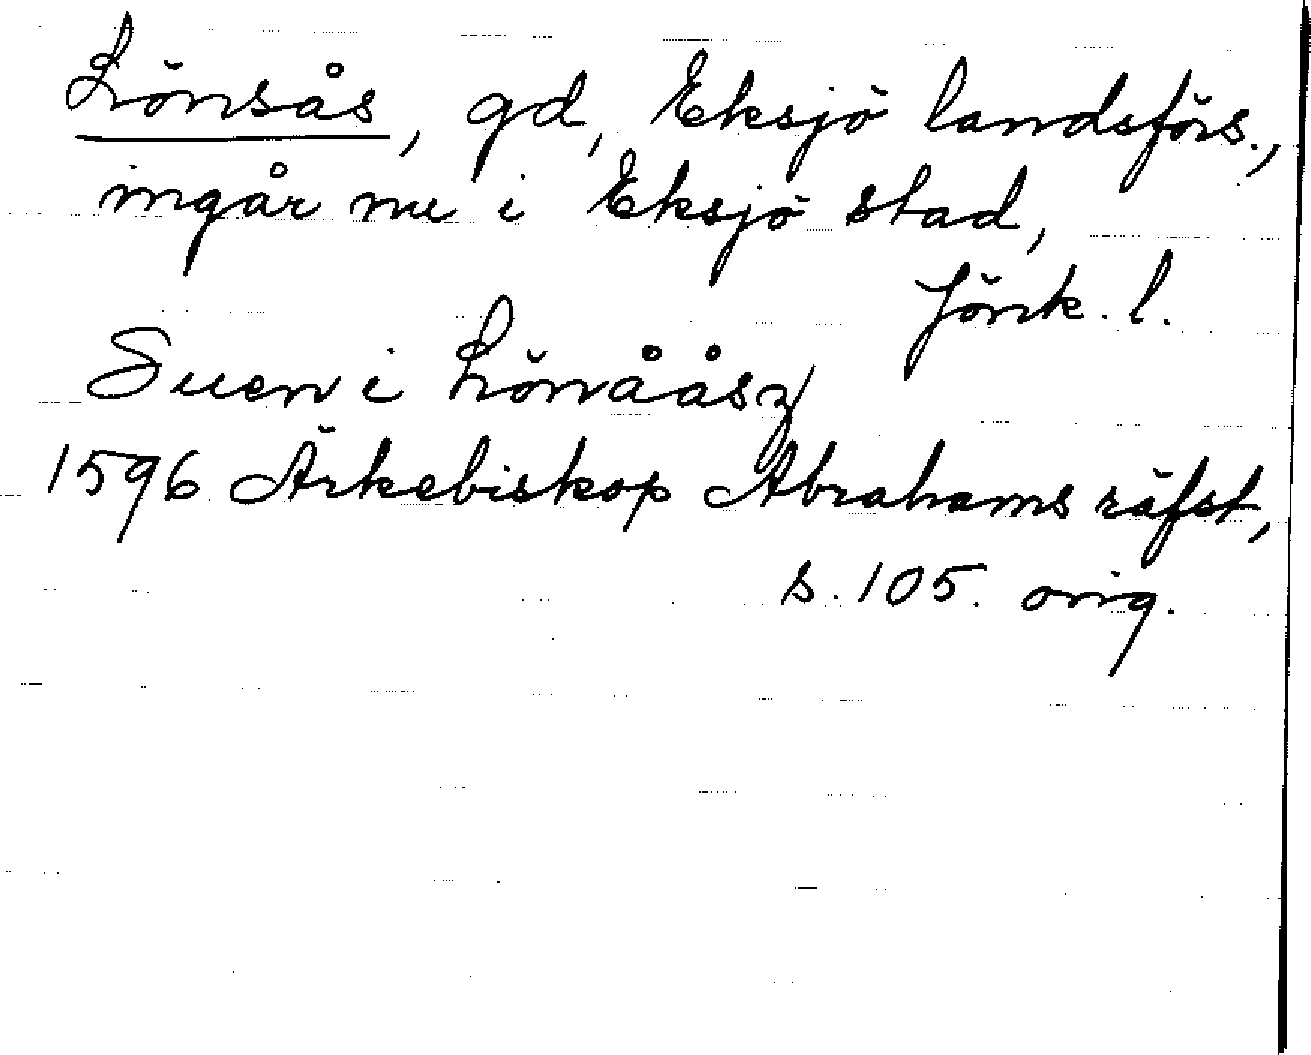 Lönsås, gd, Eksjö landsförs.,
ingår nu i Eksjö stad,
Jönk. l.
Suen i Lönååsz
1596 Ärkebiskop Abrahams räfst,
s. 105. orig.